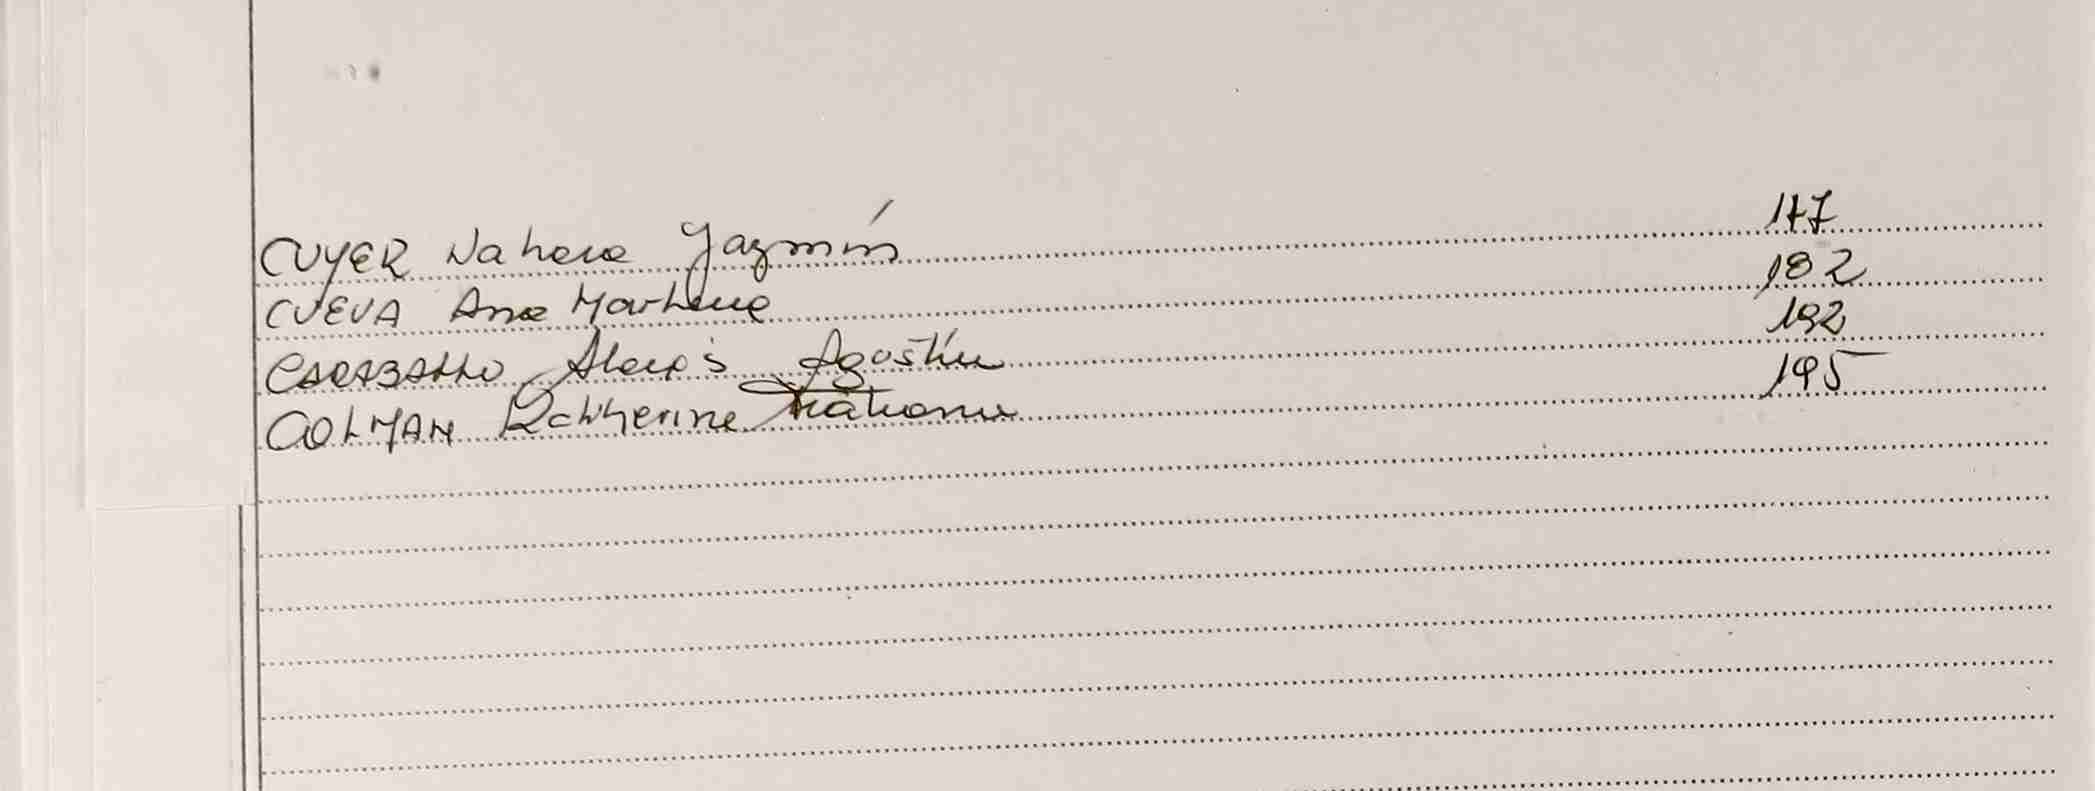 CUYER Nahere Jazmín 117
CUEVA Ana Marlene 182
CARABALLO Alexis Agostín 192
COLMAN Katherine Tatiana 195